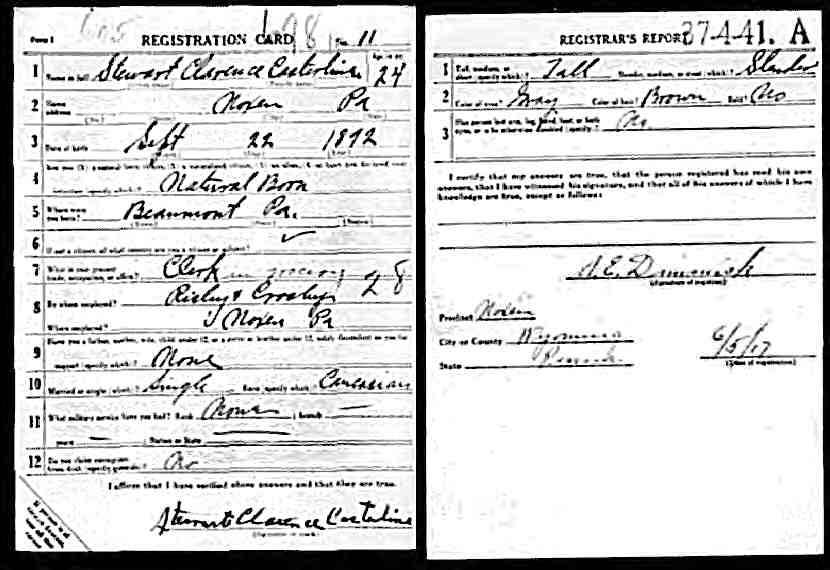 Form 1 605 REGISTRATION CARD 698 No. 11
1 Name in full Stewart Clarence Casterline Age, in yrs. 24
2 Home address Noxen Pa
3 Date of birth Sept 22 1892
4
Natural Born
5 Where were you born? Beaumont Pa.
6 If not a citizen, of what country are you a citizen or subject? ✓
7 What is your present trade, occupation, or office? Clerk in grocery 28
8 By whom employed? &
Where employed? Noxen Pa
9 Have you a father, mother, wife, child under 12, or a sister or brother under 12, solely dependent on you for
support (specify which)? None
10 Married or single (which)? Single Race (specify which)? Caucasian
11 What military service have you had? Rank None ; branch —
years — ; Nation or State
12 Do you claim exemption from draft (specify grounds)? No
I affirm that I have verified above answers and that they are true.
Stewart Clarence Casterline
(Signature or mark)
REGISTRAR'S REPORT 37-4-41. A
1 Tall, medium, or short (specify which)? Tall Slender, medium, or stout (which)? Slender
2 Color of eyes? Gray Color of hair? Brown Bald? No
3 Has person lost arm, leg, hand, foot, or both eyes, or is he otherwise disabled (specify)? No.
I certify that my answers are true, that the person registered has read his own
answers, that I have witnessed his signature, and that all of his answers of which I have
knowledge are true, except as follows:
(Signature of registrar)
Precinct Noxen
City or County Wyoming
State Penna. 6/5/17
(Date of registration)